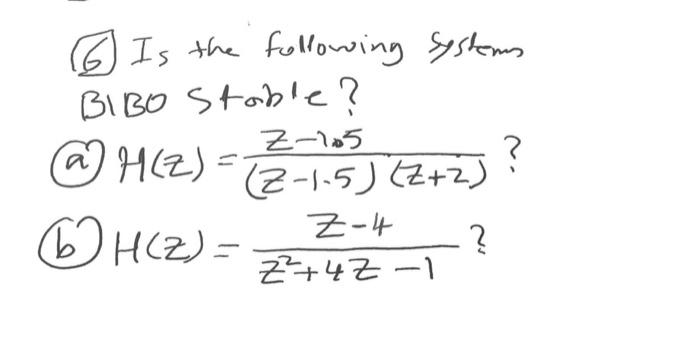 ⑥ Is the following systems
BIBO stable?
ⓐ H(Z) = (Z-1.5)/((Z-1.5)(Z+2)) ?
ⓑ H(Z) = (Z-4)/(Z²+4Z-1) ?